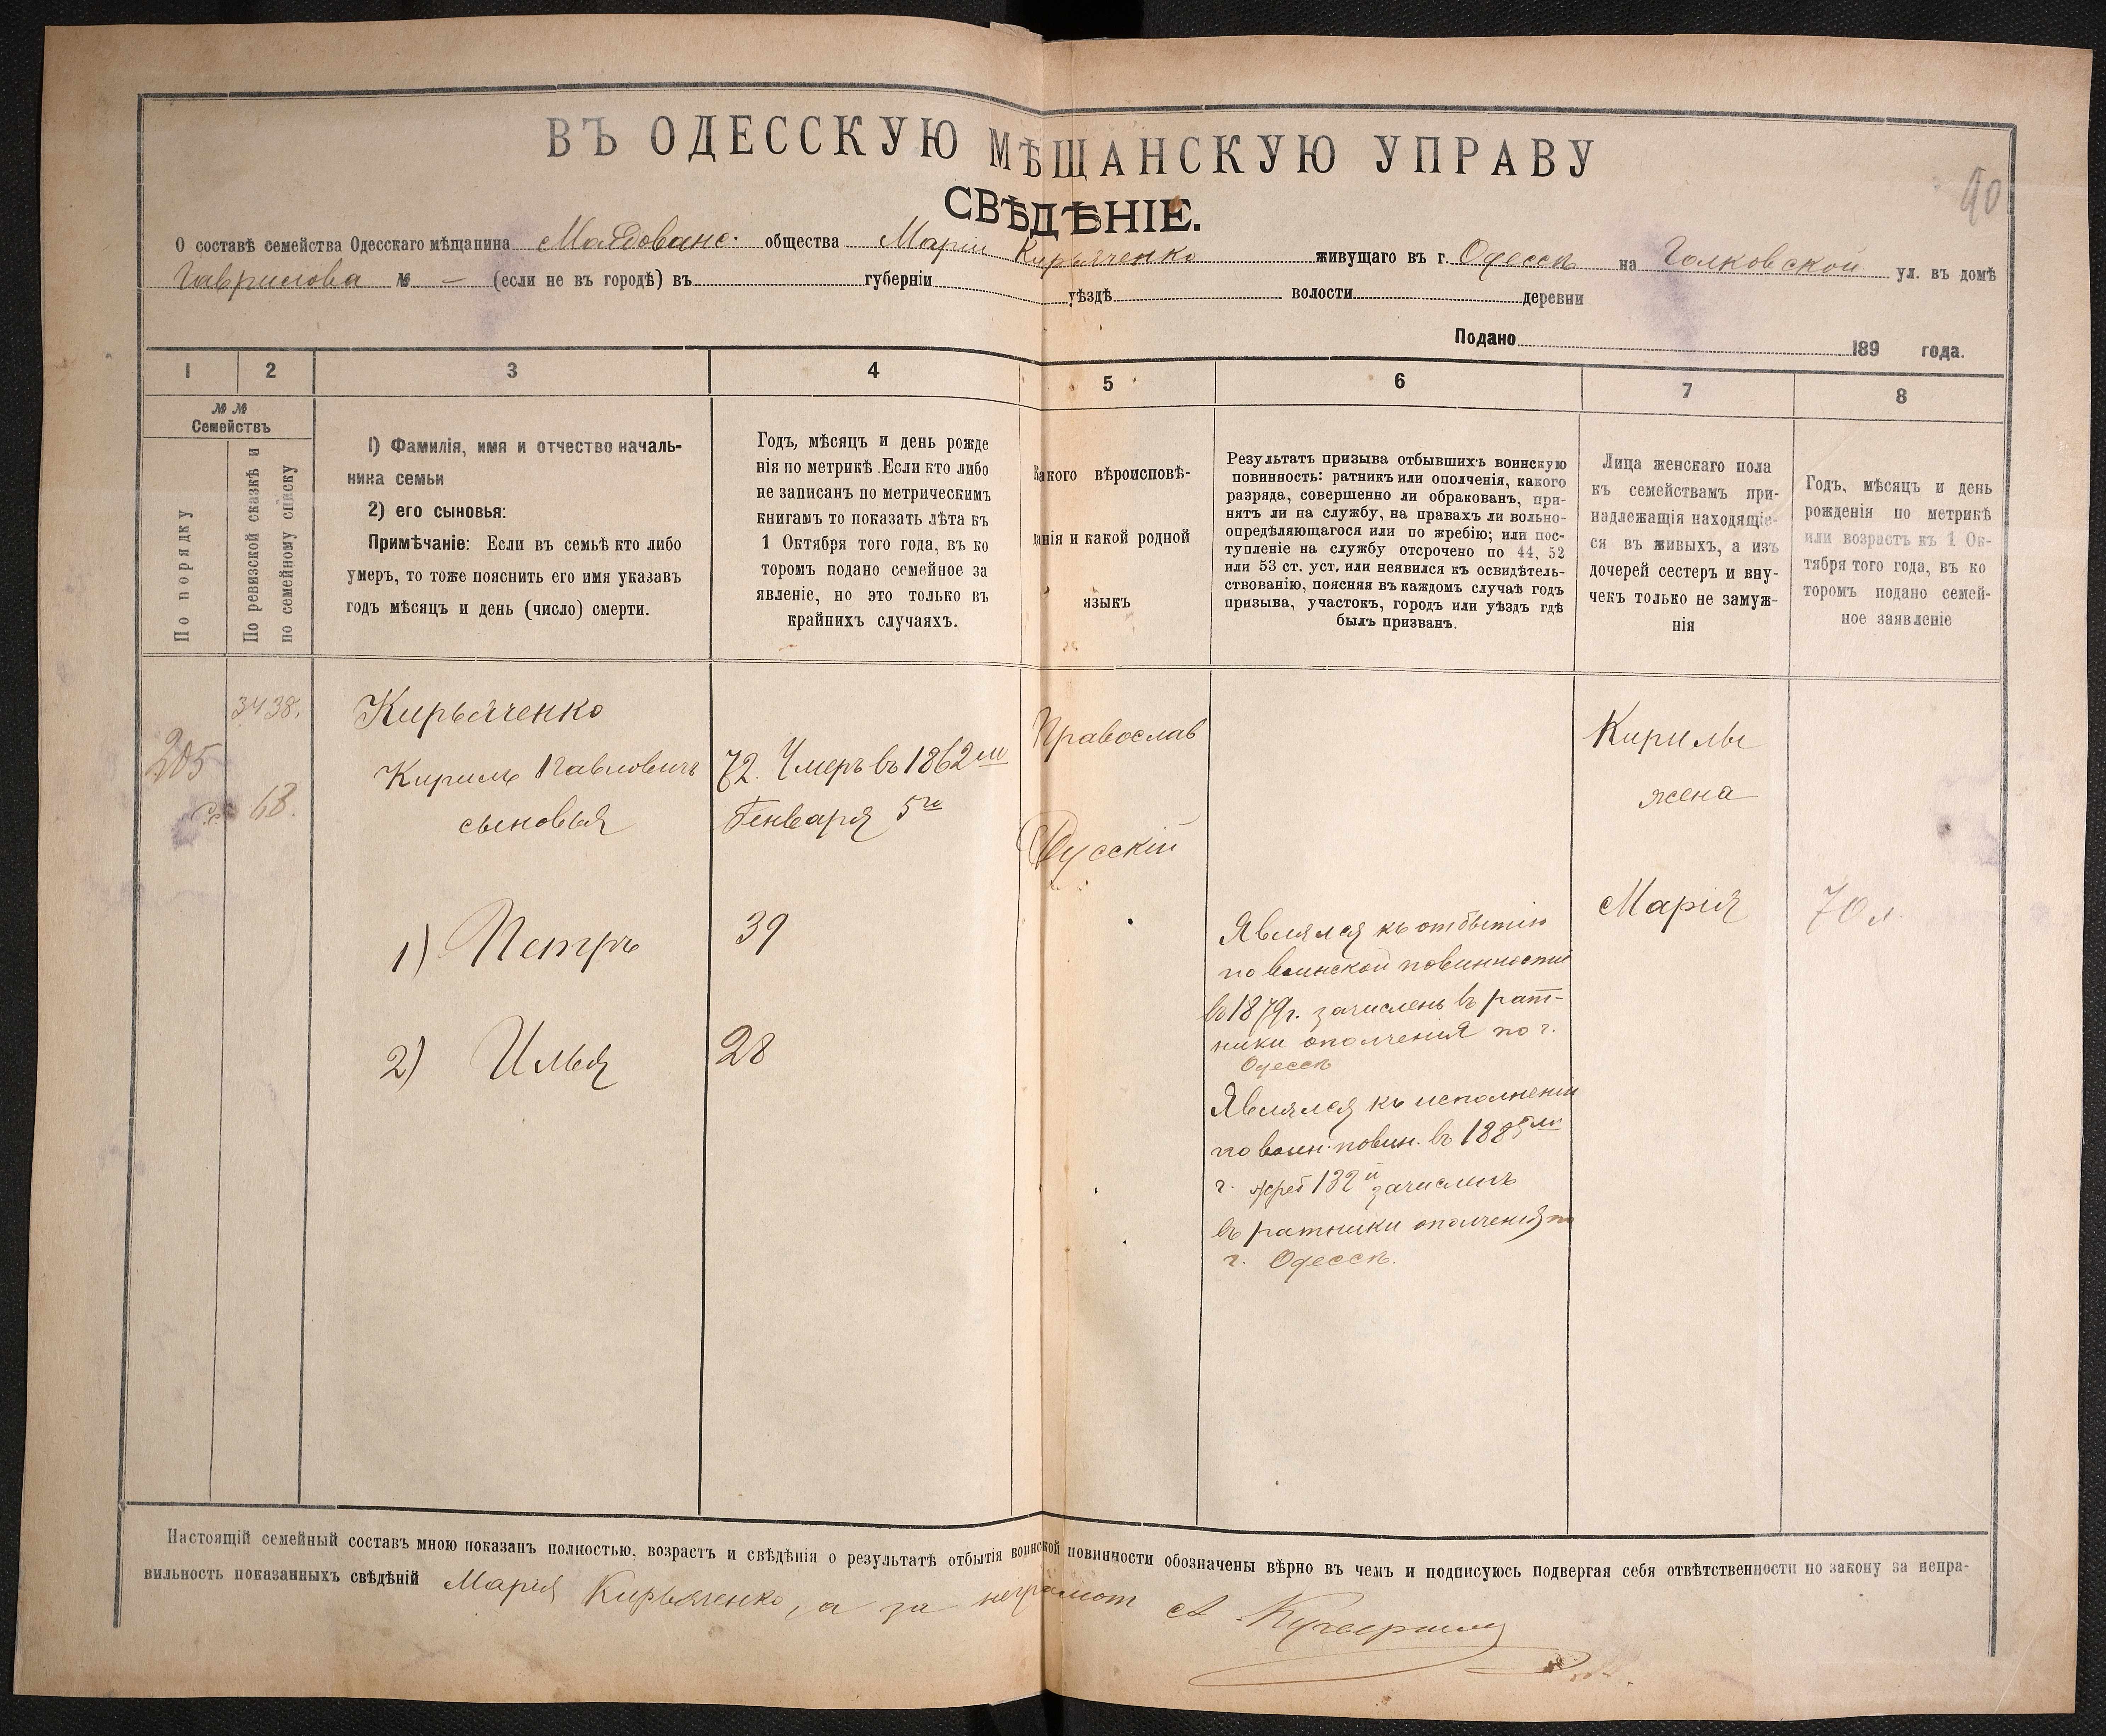 ВЪ ОДЕССКУЮ МѢЩАНСКУЮ УПРАВУ
90
СВѢДѢНІЕ.
О составѣ семейства Одесскаго мѣщанина Молдованс. общества Маріи Кирьяченко живущаго въ г. Одессѣ на Голковской ул. въ домѣ
Гаврилова № — (если не въ городѣ) въ губерніи уѣздѣ волости деревни
Подано 189 года.
1 2 3 4 5 6 7 8
№ №
Семействъ
По порядку
По ревизской сказкѣ и
по семейному списку
1) Фамилія, имя и отчество началь-
ника семьи
2) его сыновья:
Примѣчаніе: Если въ семьѣ кто либо
умеръ, то тоже пояснить его имя указавъ
годъ мѣсяцъ и день (число) смерти.
Годъ, мѣсяцъ и день рожде
нія по метрикѣ .Если кто либо
не записанъ по метрическимъ
книгамъ то показать лѣта къ
1 Октября того года, въ ко
торомъ подано семейное за
явленіе, но это только въ
крайнихъ случаяхъ.
Какого вѣроисповѣ-
данія и какой родной
языкъ
Результатъ призыва отбывшихъ воинскую
повинность: ратникъ или ополченія, какого
разряда, совершенно ли обракованъ, при-
нятъ ли на службу, на правахъ ли вольно-
опредѣляющагося или по жребію; или пос-
тупленіе на службу отсрочено по 44, 52
или 53 ст. уст. или неявился къ освидѣтель-
ствованію, поясняя въ каждомъ случаѣ годъ
призыва, участокъ, городъ или уѣздъ гдѣ
былъ призванъ.
Лица женскаго пола
къ семействамъ при-
надлежащія находящіе-
ся въ живыхъ, а изъ
дочерей сестеръ и вну-
чекъ только не замуж-
нія
Годъ, мѣсяцъ и день
рожденія по метрикѣ
или возрастъ къ 1 Ок-
тября того года, въ ко
торомъ подано семей-
ное заявленіе
205
3438.
68.
Кирьяченко
Кирилъ Павловичъ
сыновья
72. Умеръ въ 1862 м
Генваря 5го
Православ
Русскій
Кирилы
жена
1) Петръ
39
Являлся къ отбытію
по воинской повинности
въ 1879 г. зачисленъ въ рат-
ники ополчения по г.
Одессѣ
Марія
70 л.
2) Илья
28
Являлся къ исполнении
по воин. повин. въ 1885 мъ
г. жреб 132й зачисленъ
въ ратники ополчения по
г. Одессѣ.
Настоящій семейный составъ мною показанъ полностью, возрастъ и свѣдѣнія о результатѣ отбытія воинской повинности обозначены вѣрно въ чемъ и подписуюсь подвергая себя отвѣтственности по закону за непра-
вильность показанныхъ свѣдѣній Марія Кирьяченко, а за неграмот